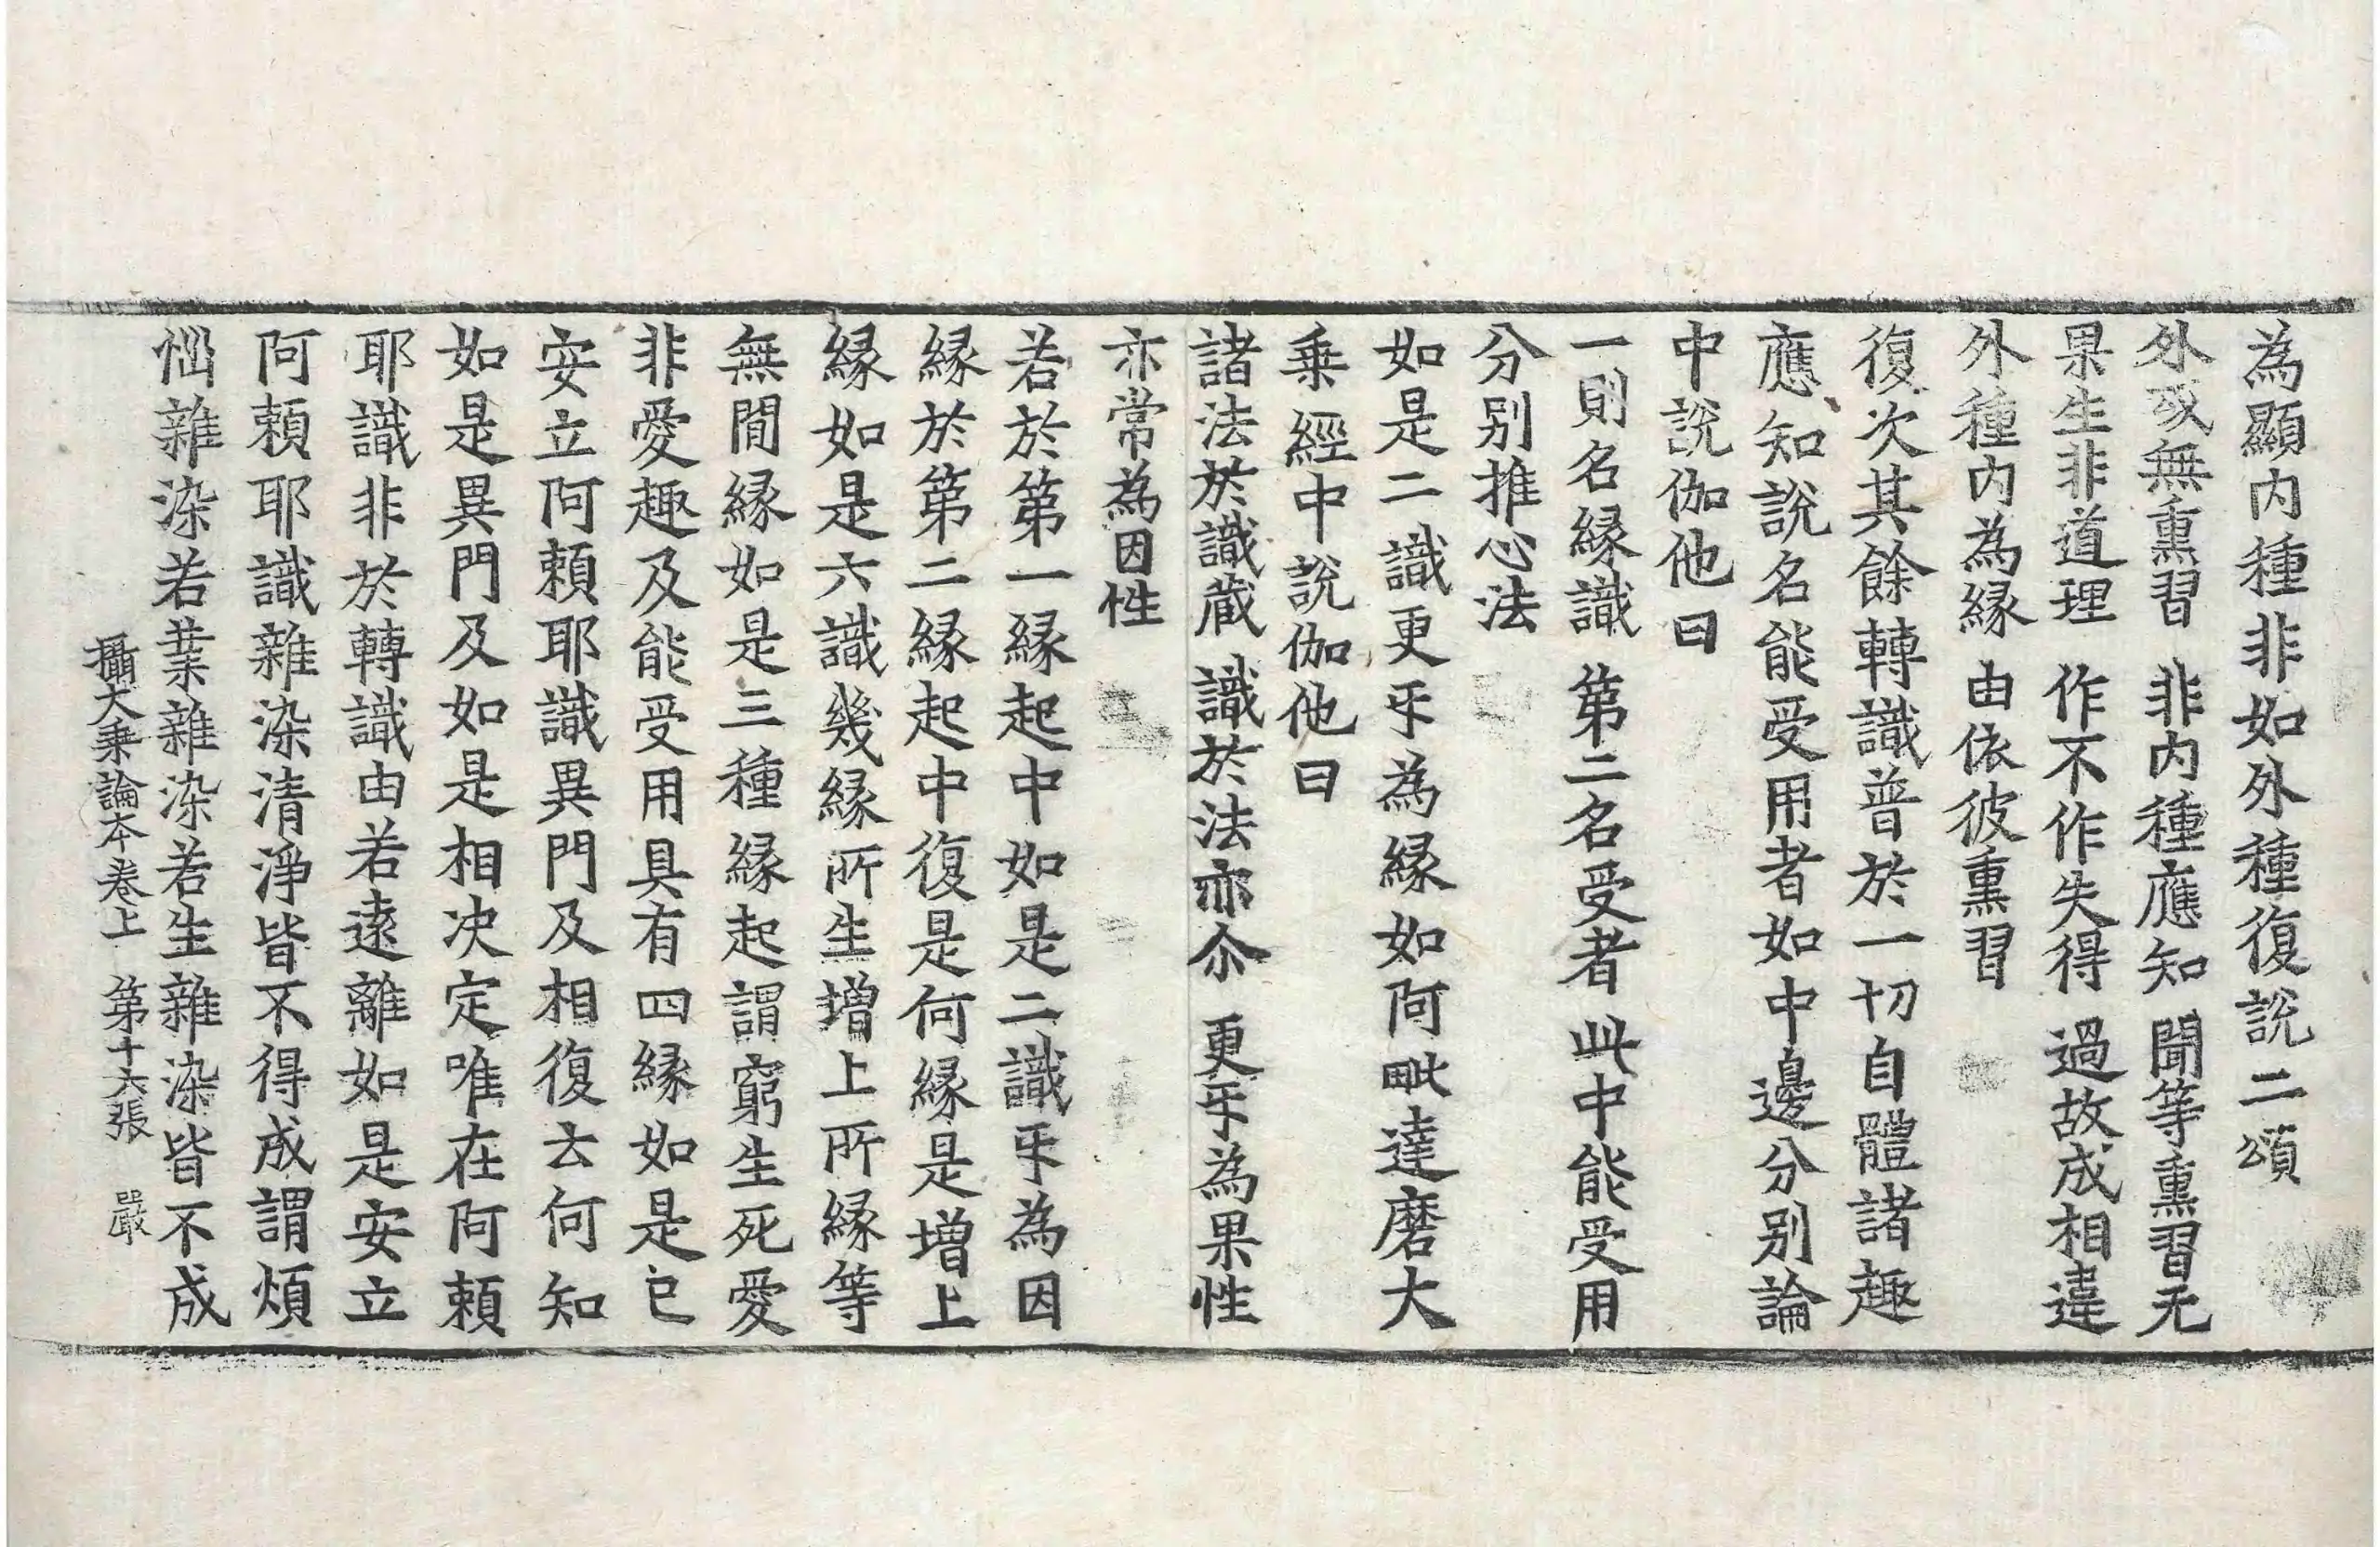 為顯内種非如外種復說二頌
外或無熏習　非内種應知　聞等熏習无
果生非道理　作不作失得　過故成相違
外種内為縁　由依彼熏習
復次其餘轉識普於一切自體諸趣
應知說名能受用者如中邊分别論
中說伽他曰
一則名縁識　第二名受者　此中能受用
分别推心法
如是二識更㸦為縁如阿毗達磨大
乗經中說伽他曰
諸法於識蔵　識於法亦尒　更㸦為果性
亦常為因性
若於第一縁起中如是二識㸦為因
縁於第二縁起中復是何縁是增上
縁如是六識幾縁所生增上所縁等
無間縁如是三種縁起謂窮生死愛
非愛趣及能受用具有四縁如是已
安立阿頼耶識異門及相復云何知
如是異門及如是相决定唯在阿頼
耶識非於轉識由若遠離如是安立
阿頼耶識雜染清淨皆不得成謂煩
惱雜染若業雜染若生雜染皆不成
攝大乗論本卷上　第十六張　嚴